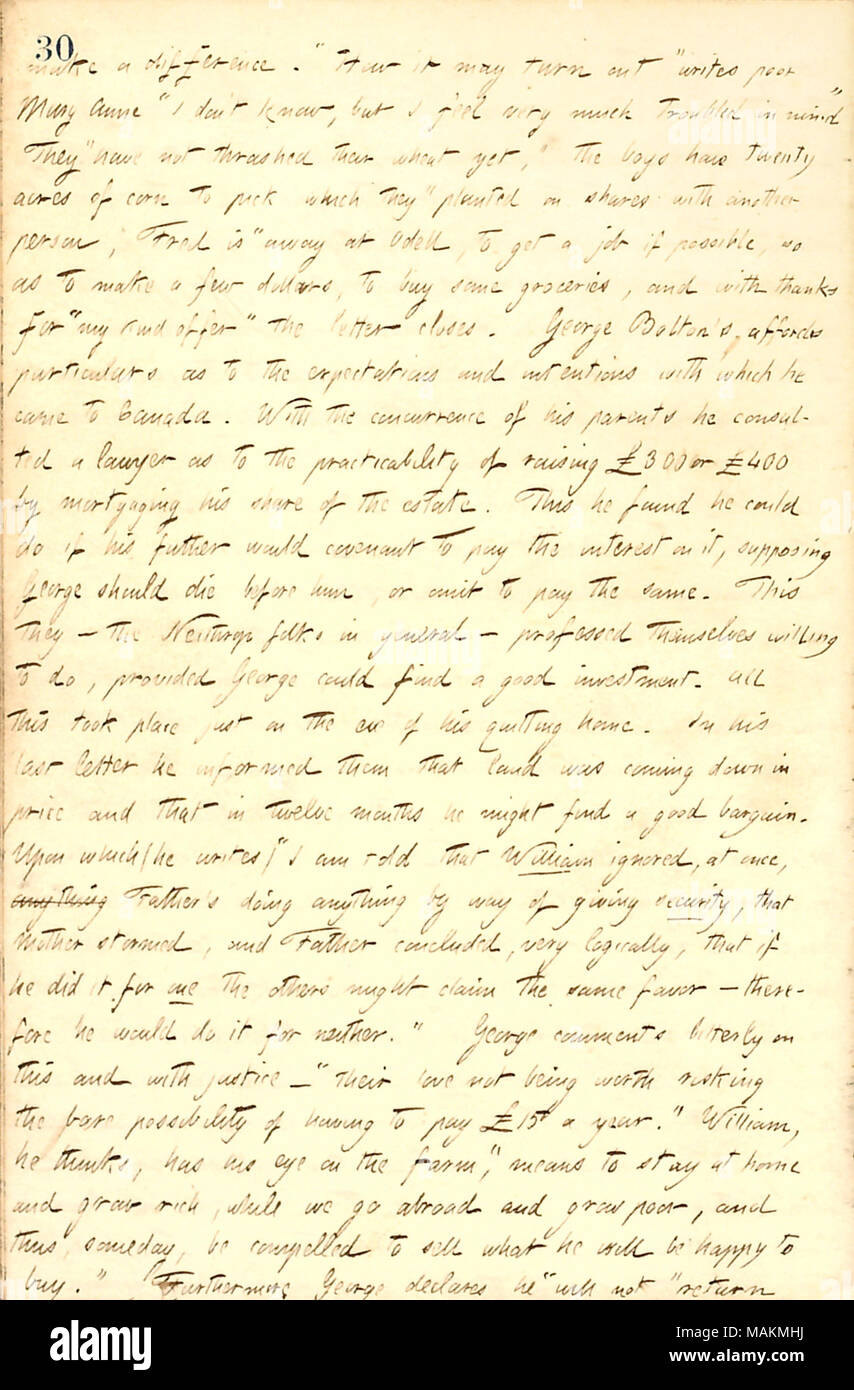 30
make a difference." "How it may turn out" writes poor
Mary Anne "I don't know, but I feel very much troubled in mind"
They "have not thrashed their wheat yet," the boys have twenty
acres of corn to pick which they "planted on shares with another
person," Fred is "away at Odell, to get a job if possible, so
as to make a few dollars, to buy some groceries, and with thanks
for "my kind offer" the letter closes. George Bolton's affords
particulars as to the expectations and intentions with which he
came to Canada. With the concurrence of his parents he consul-
ted a lawyer as to the practicability of raising £300 or £400
by mortgaging his share of the estate. This he found he could
do if his father would covenant to pay the interest on it, supposing
George should die before him, or omit to pay the same. This
they — the Neithrop folks in general — professed themselves willing
to do, provided George could find a good investment. All
this took place just on the eve of his quitting home. In his
last letter he informed them that land was coming down in
price and that in twelve months he might find a good bargain.
Upon which (he writes) "I am told that William ignored, at once,
anything Father's doing anything by way of giving security, that
Mother stormed, and Father concluded, very logically, that if
he did it for one the others might claim the same favor — there-
fore he would do it for neither." George comments bitterly on
this and with justice — "their love not being worth risking
the bare possibility of having to pay £15 a year." William,
he thinks, has his eye on the farm, "means to stay at home
and grow rich, while we go abroad and grow poor, and
thus, someday, be compelled to sell what he will be happy to
buy." Furthermore George declares he "will not" return
alamy
Image ID: MAKMHJ
www.alamy.com